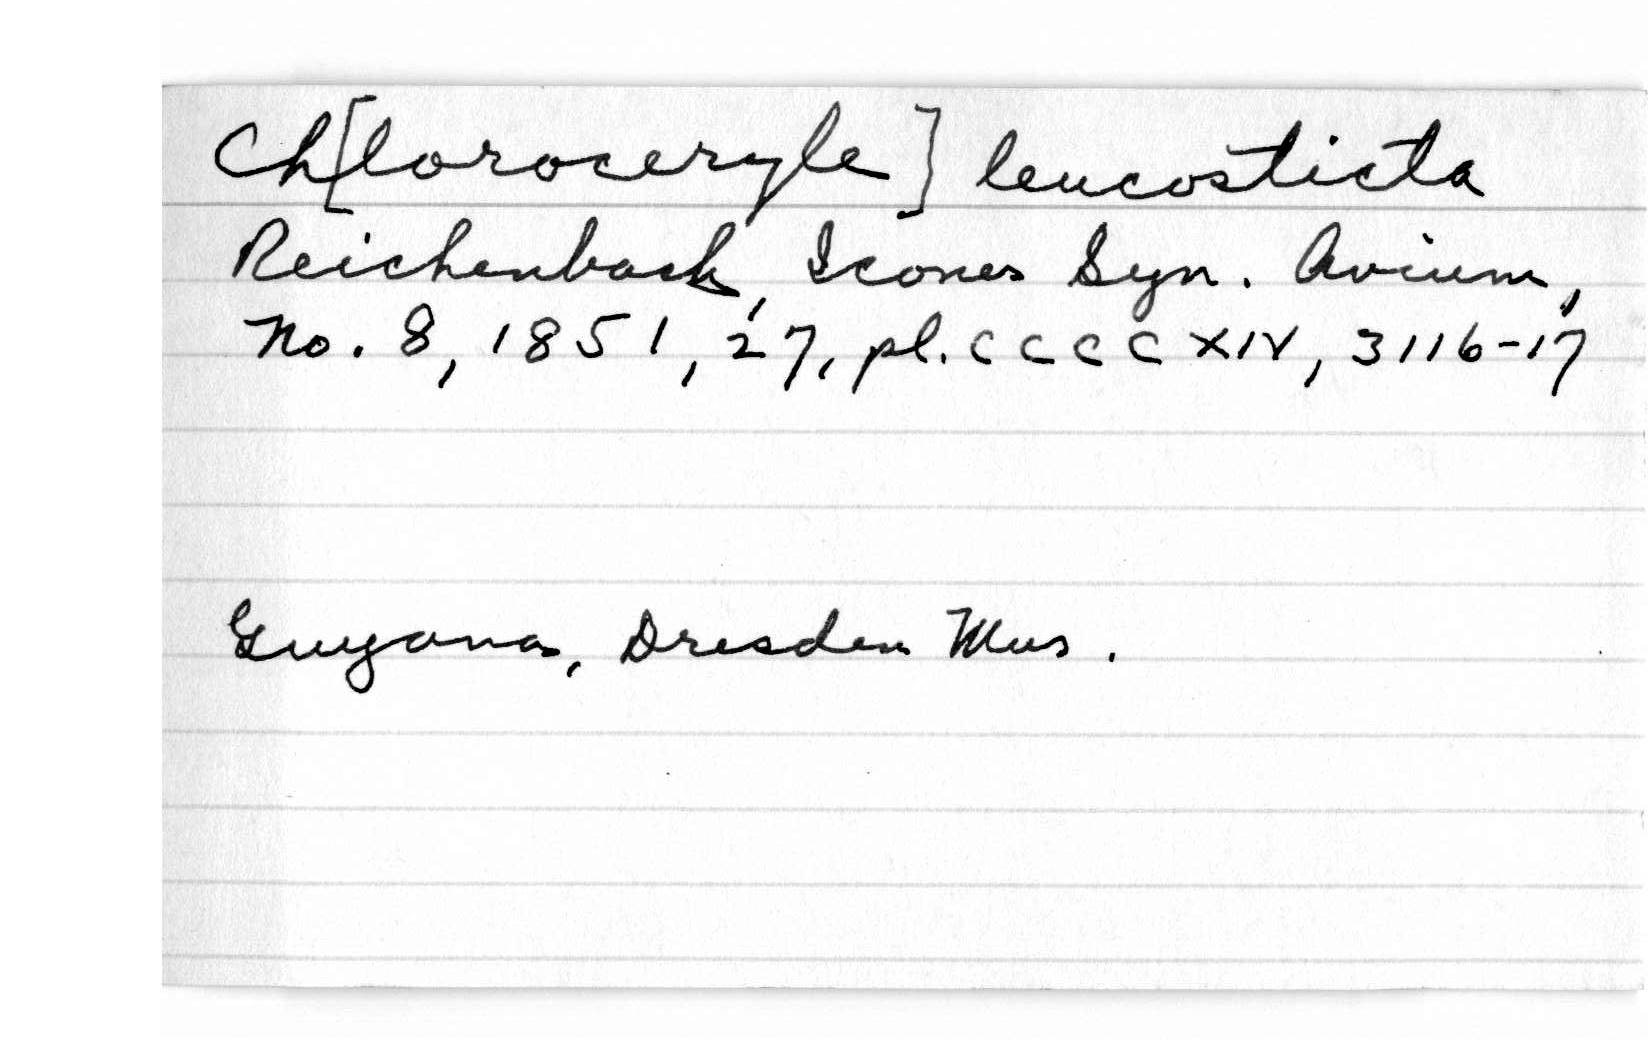 Ch[loroceryle] leucosticta
Reichenbach, Icones Syn. Avium,
No. 8, 1851, 27, pl. CCCCXIV, 3116-17
Guyana, Dresden Mus.